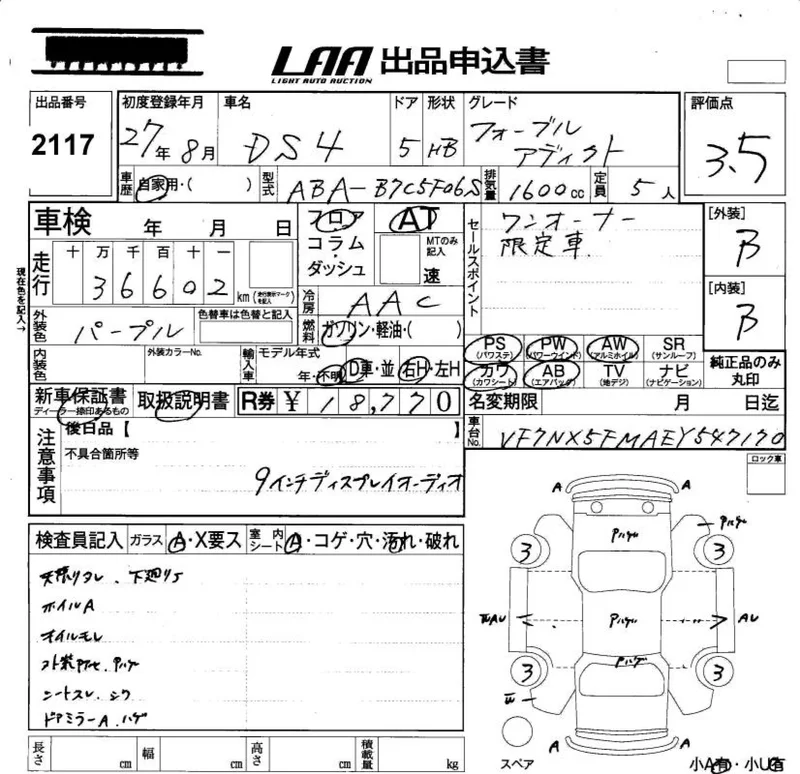 LAA 出品申込書
LIGHT AUTO AUCTION
出品番号
2117
初度登録年月
27年 8月
車名
DS4
ドア
5
形状
HB
グレード
フォーブル
アディクト
評価点
3.5
車歴
自家用・( )
型式
ABA-B7C5F06S
排気量
1600cc
定員
5人
車検 年 月 日
フロア
コラム
・
ダッシュ
AT
MTのみ
記入
速
セールスポイント
ワンオーナー
限定車
[外装]
B
[内装]
B
現在色を記入→
走行
十 万 千 百 十 一
3 6 6 0 2
km (走行表示マークを記入)
冷房
AAC
燃料
ガソリン・軽油・( )
外装色
パープル
色替車は色替と記入
内装色
外装カラーNo.
輸入車
モデル年式
年・不明
D車・並
右H・左H
PS
(パワステ)
PW
(パワーウインド)
AW
(アルミホイル)
SR
(サンルーフ)
カワ
(カワシート)
AB
(エアバッグ)
TV
(地デジ)
ナビ
(ナビゲーション)
純正品のみ
丸印
新車保証書
ディーラー捺印あるもの
取扱説明書
R券 ¥ 18,770
名変期限 月 日迄
車台No.
VF7NX5FMAEY547170
注意事項
後日品【 】
不具合箇所等
9インチディスプレイオーディオ
ロック車
検査員記入
ガラス
A・X要ス
室内シート
A・コゲ・穴・汚れ・破れ
天張りタレ、下廻りS
ホイルA
オイルモレ
外装アセ、Pハゲ
シートスレ、シワ
ドアミラーA、ハゲ
A A
Pハゲ
Pハゲ
3 3
AU
Pハゲ
AU
Pハゲ
3 3
A A
スペア
小A有・小U有
長さ cm
幅 cm
高さ cm
積載量 kg